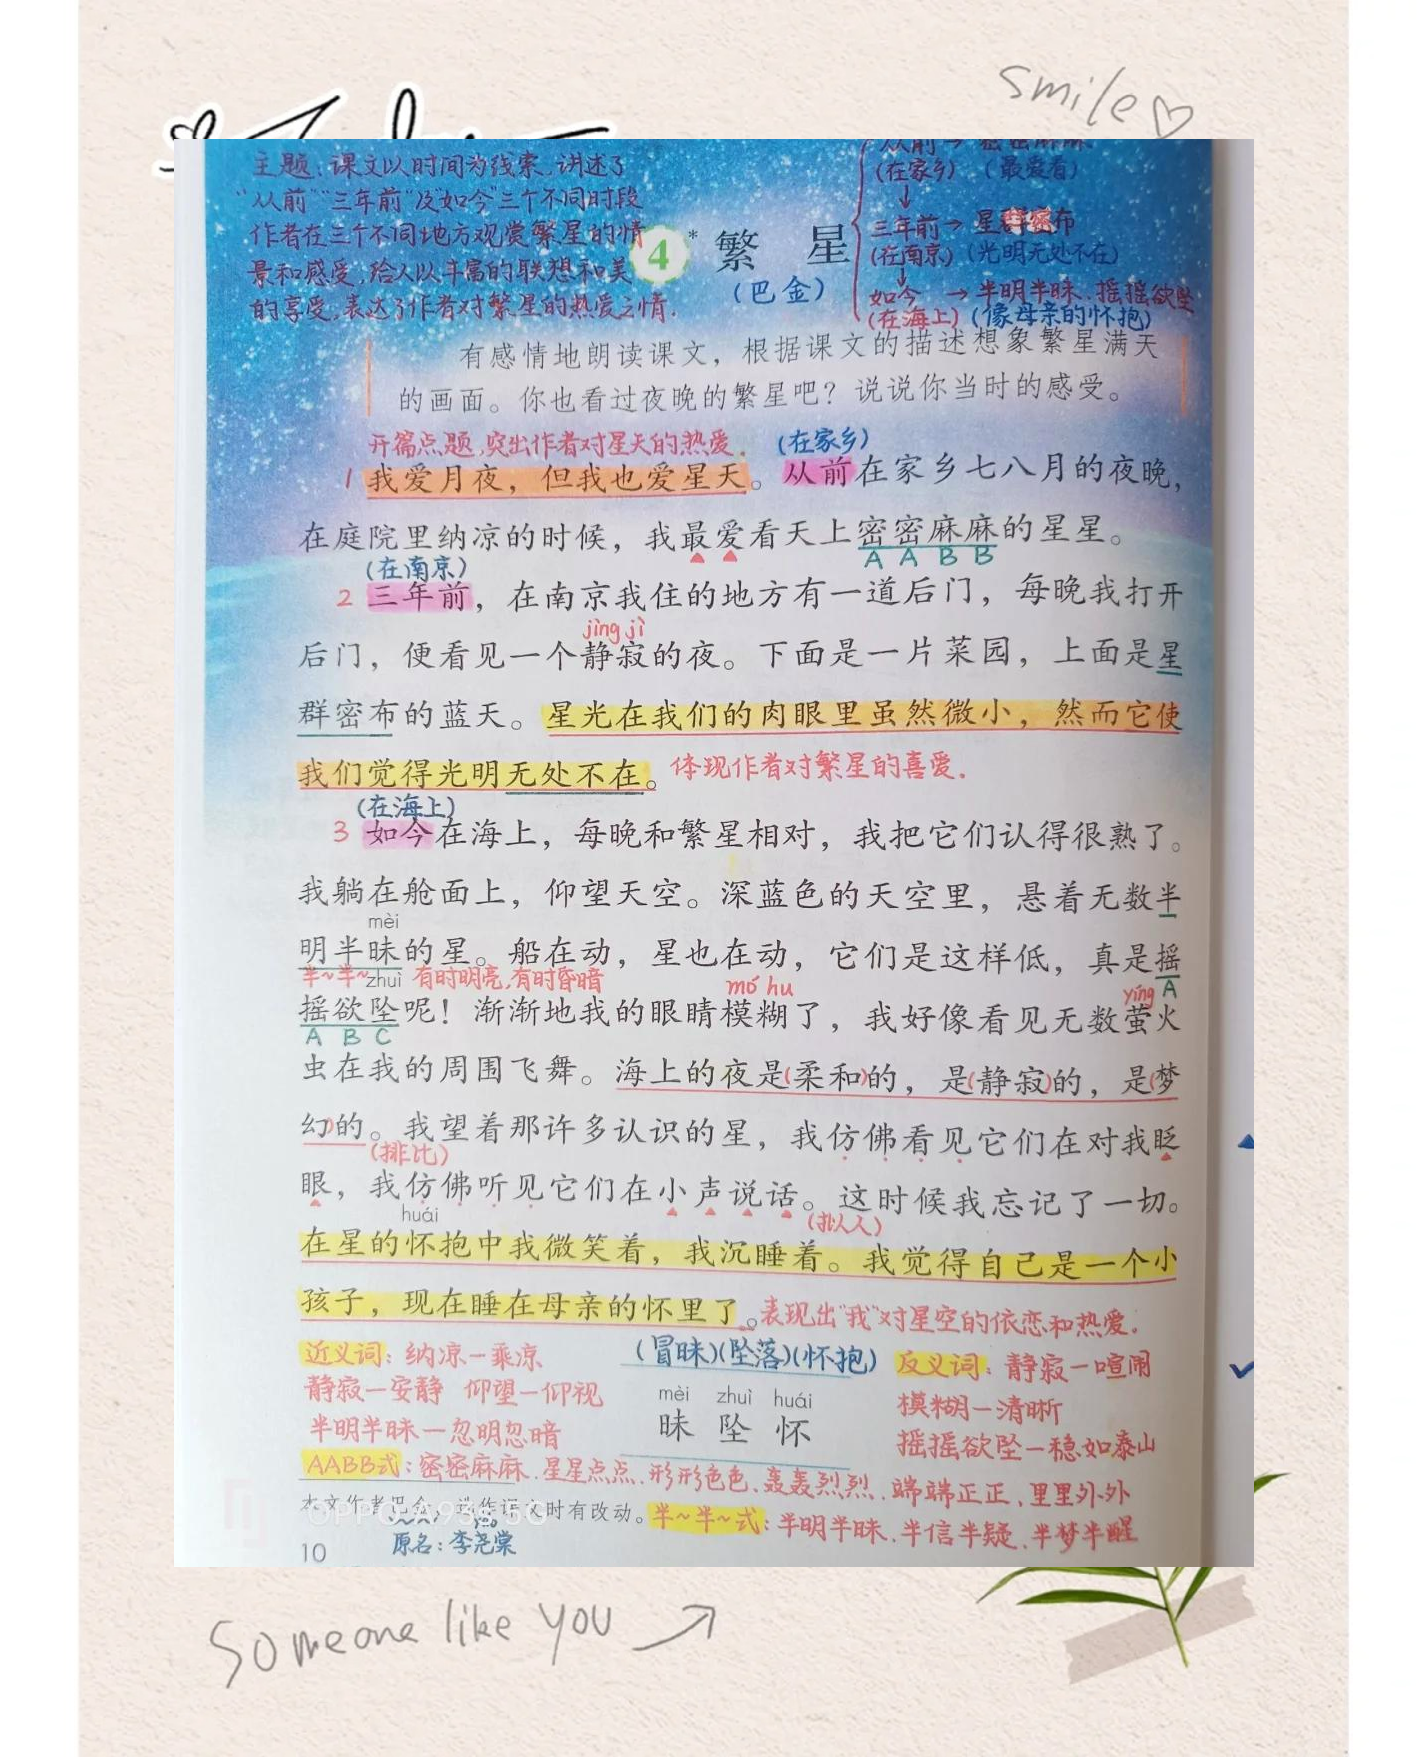 smile♡
主题：课文以时间为线索，讲述了
“从前”“三年前”及“如今”三个不同时段
作者在三个不同地方观赏繁星的情
景和感受，给人以丰富的联想和美
的享受，表达了作者对繁星的热爱之情.
4* 繁 星
(巴金)
从前→密密麻麻
(在家乡) (最爱看)
↓
三年前→星群密布
(在南京) (光明无处不在)
↓
如今→半明半昧.摇摇欲坠
(在海上) (像母亲的怀抱)
有感情地朗读课文，根据课文的描述想象繁星满天
的画面。你也看过夜晚的繁星吧？说说你当时的感受。
开篇点题,突出作者对星天的热爱. (在家乡)
1 我爱月夜，但我也爱星天。从前在家乡七八月的夜晚，
在庭院里纳凉的时候，我最爱看天上密密麻麻的星星。
A A B B
(在南京)
2 三年前，在南京我住的地方有一道后门，每晚我打开
jìng jì
后门，便看见一个静寂的夜。下面是一片菜园，上面是星
群密布的蓝天。星光在我们的肉眼里虽然微小，然而它使
我们觉得光明无处不在。体现作者对繁星的喜爱.
(在海上)
3 如今在海上，每晚和繁星相对，我把它们认得很熟了。
我躺在舱面上，仰望天空。深蓝色的天空里，悬着无数半
mèi
明半昧的星。船在动，星也在动，它们是这样低，真是摇
半~半~ zhuì 有时明亮,有时昏暗 mó hu yíng A
摇欲坠呢！渐渐地我的眼睛模糊了，我好像看见无数萤火
A B C
虫在我的周围飞舞。海上的夜是(柔和)的，是(静寂)的，是(梦
幻)的。我望着那许多认识的星，我仿佛看见它们在对我眨
(排比)
眼，我仿佛听见它们在小声说话。这时候我忘记了一切。
huái (拟人)
在星的怀抱中我微笑着，我沉睡着。我觉得自己是一个小
孩子，现在睡在母亲的怀里了。表现出“我”对星空的依恋和热爱.
近义词：纳凉—乘凉
静寂—安静 仰望—仰视
半明半昧—忽明忽暗
(冒昧)(坠落)(怀抱)
mèi zhuì huái
昧 坠 怀
反义词：静寂—喧闹
模糊—清晰
摇摇欲坠—稳如泰山
AABB式：密密麻麻.星星点点.形形色色.轰轰烈烈.端端正正.里里外外
本文作者巴金，选作课文时有改动。
半~半~式：半明半昧.半信半疑.半梦半醒
原名：李尧棠
10
Someone like you